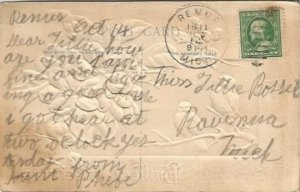 Remus
Oct 14
Dear Tillie how
are you I am
fine and hav
ing a good time
i got hear at
two oclock yes
terday from
Aunt Phebe
POST CARD
REMUS
OCT
MICH
Miss Tillie Bossie
Ravenna
Mich